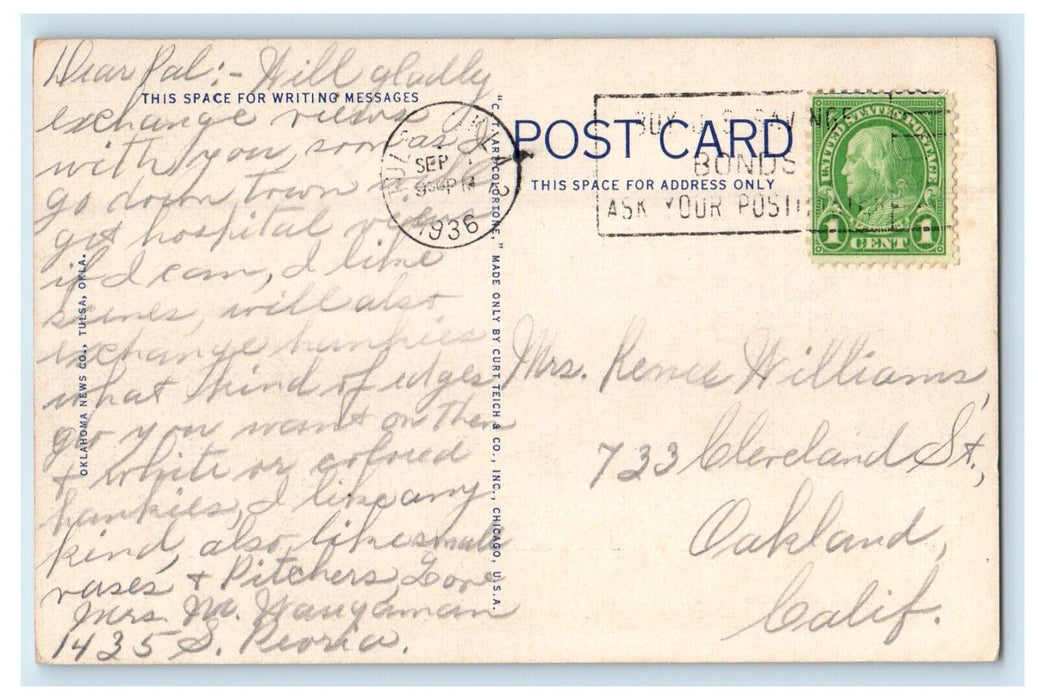 Dear Pal:- Will gladly
THIS SPACE FOR WRITING MESSAGES
exchange views
with you, soon as I
go down town
get hospital views
if I can, I like
scenes, will also
exchange hankies
what kind of edges
do you want on them
& white or colored
hankies, I like any
kind, also, like small
vases & Pitchers, Love
Mrs. M. Waugaman
1435 S. Peoria.
OKLAHOMA NEWS CO., TULSA, OKLA.
"C.T. ART-COLORTONE," MADE ONLY BY CURT TEICH & CO., INC., CHICAGO, U.S.A.
SEP
1936
POST CARD
THIS SPACE FOR ADDRESS ONLY
BUY U.S. SAVINGS
BONDS
ASK YOUR POSTMASTER
UNITED STATES POSTAGE
FRANKLIN
1 CENT 1
Mrs. Renee Williams,
733 Cleveland St.,
Oakland,
Calif.